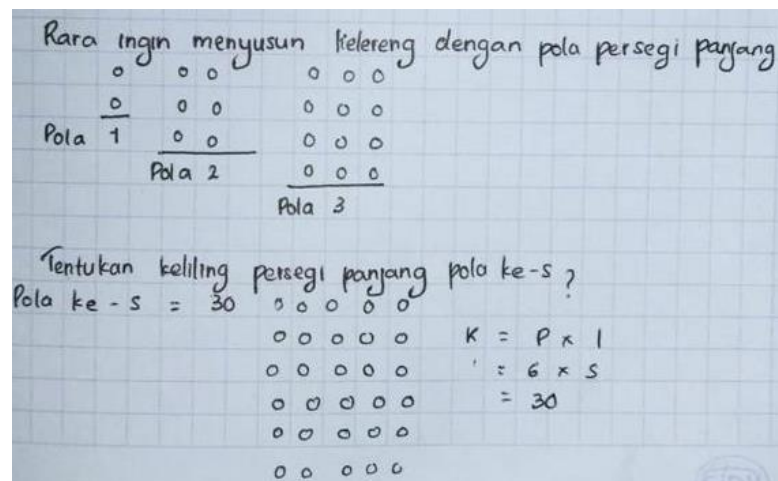 Rara ingin menyusun kelereng dengan pola persegi panjang
o o o o o o
o o o o o o
Pola 1 o o o o o
Pola 2 o o o
Pola 3
Tentukan keliling persegi panjang pola ke-5?
Pola ke-5 = 30 o o o o o
o o o o o K = P x l
o o o o o = 6 x 5
o o o o o = 30
o o o o o
o o o o o